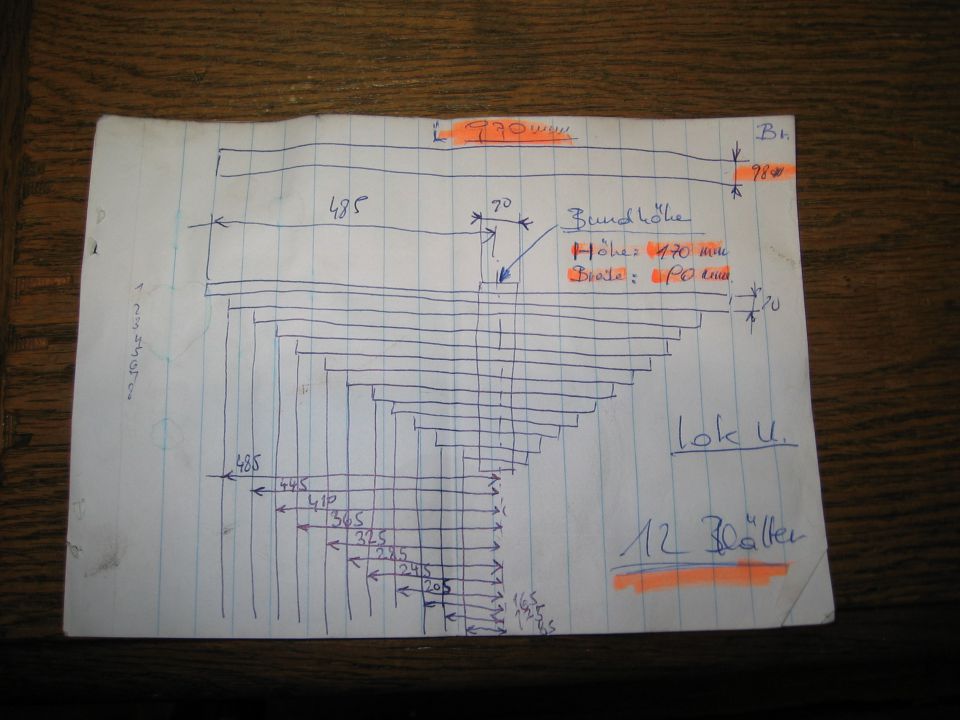 L 970 mm
Br.
98 m
485
90
Bundhöhe
Höhe: 170 mm
Breite: 90 mm
1
2
3
4
5
6
7
8
Lok U.
485
445
410
365
325
285
245
205
165
125
12 Blätter